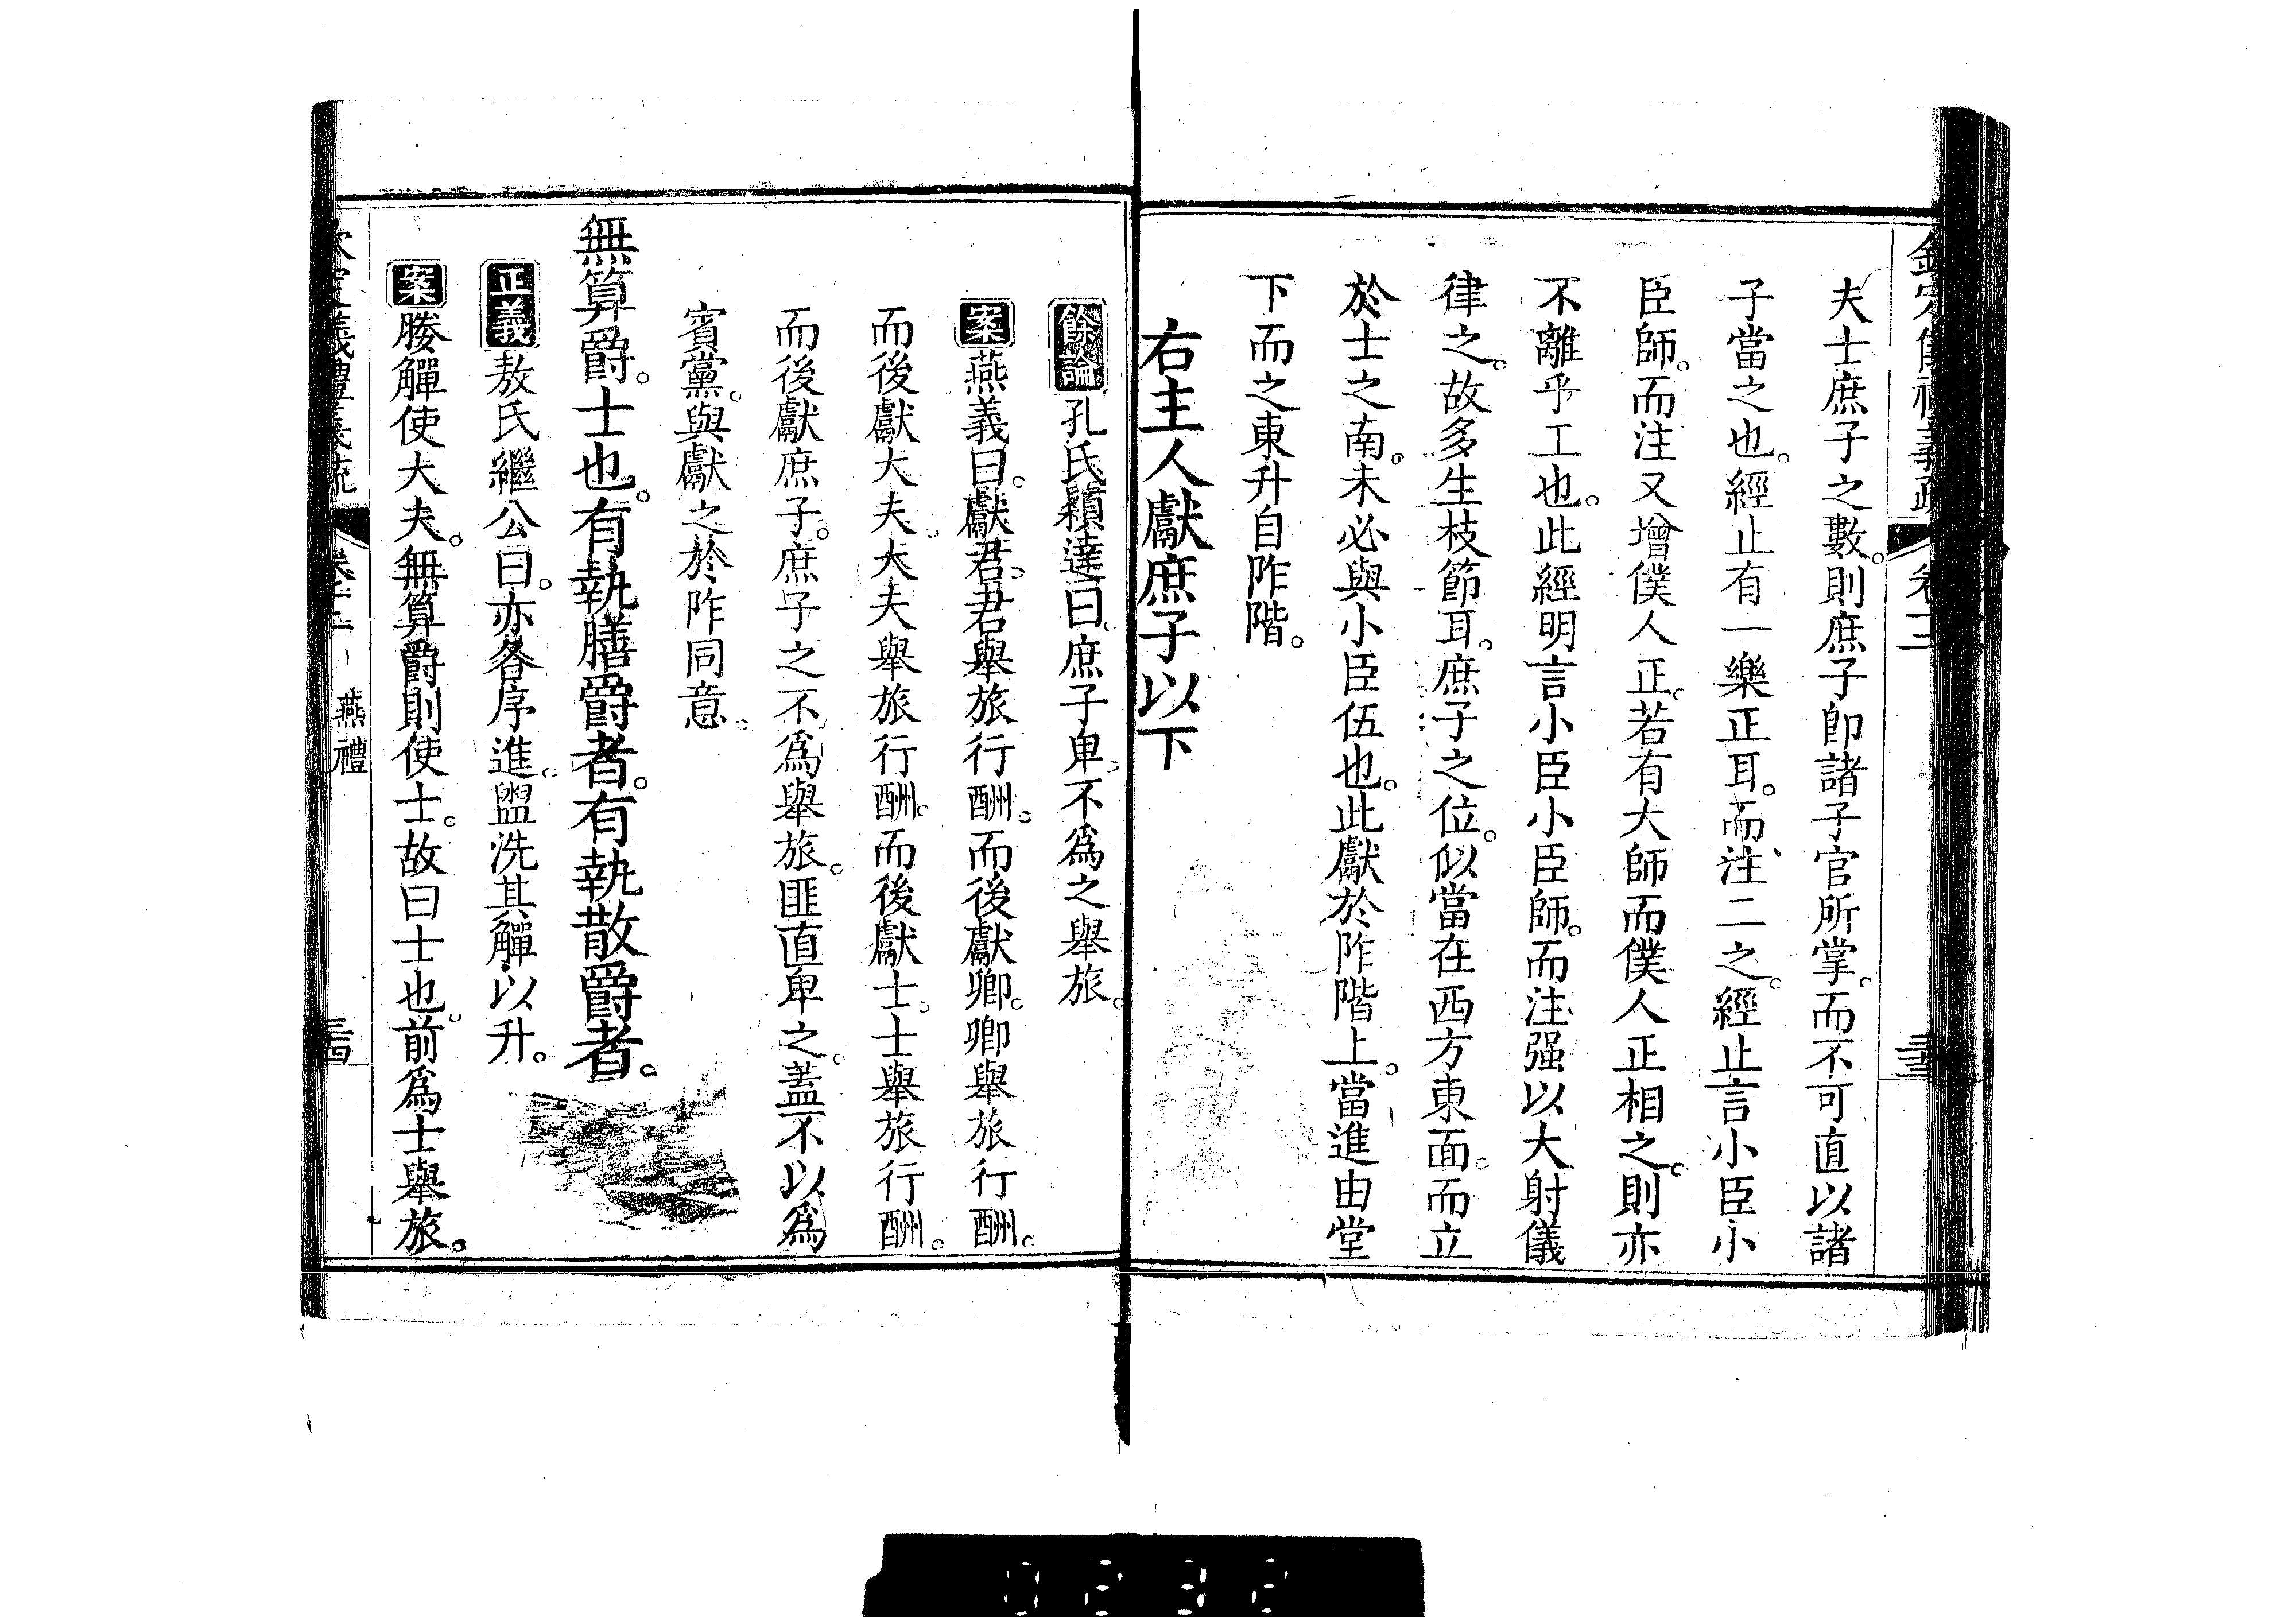 夫士庶子之數。則庶子卽諸子官所掌。而不可直以諸
子當之也。經止有一樂正耳。而注二之。經止言小臣小
臣師。而注又增僕人正。若有大師而僕人正相之。則亦
不離乎工也。此經明言小臣小臣師。而注强以大射儀
律之。故多生枝節耳。庶子之位。似當在西方東面。而立
於士之南。未必與小臣伍也。此獻於阼階上。當進由堂
下而之東升自阼階。
右主人獻庶子以下
餘論孔氏穎達曰。庶子卑。不爲之舉旅。
案燕義曰。獻君。君舉旅行酬。而後獻卿。卿舉旅行酬。
而後獻大夫。大夫舉旅行酬。而後獻士。士舉旅行酬。
而後獻庶子。庶子之不爲舉旅。匪直卑之。蓋不以爲
賓黨。與獻之於阼同意。
無算爵。士也。有執膳爵者。有執散爵者。
正義敖氏繼公曰。亦各序進。盥洗其觶以升。
案媵觶使大夫。無算爵則使士。故曰士也。前爲士舉旅。
燕禮